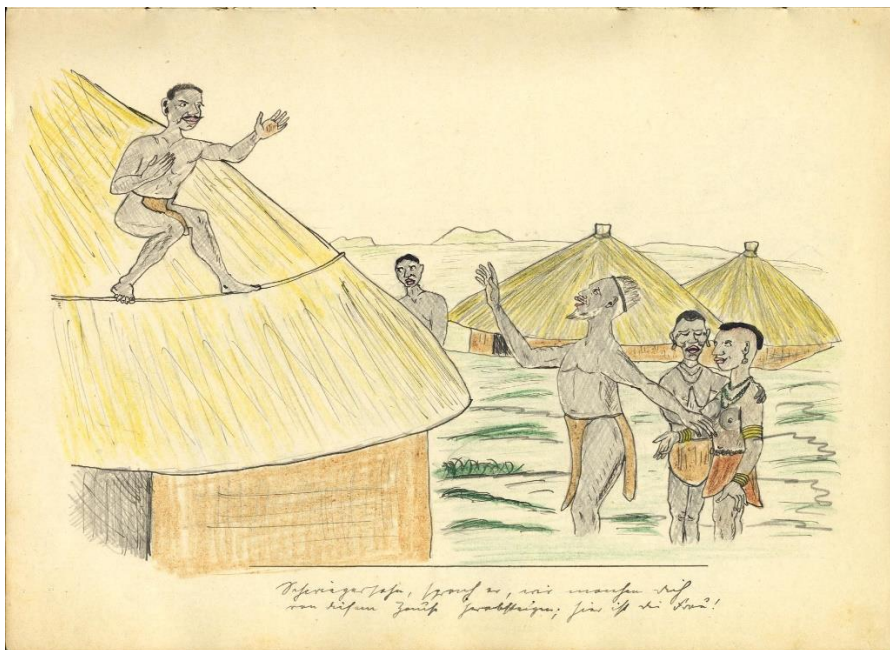 Schwiegersohn, sprach er, wir machen dich
von disem Hause herabsteigen; hier ist di Frau!